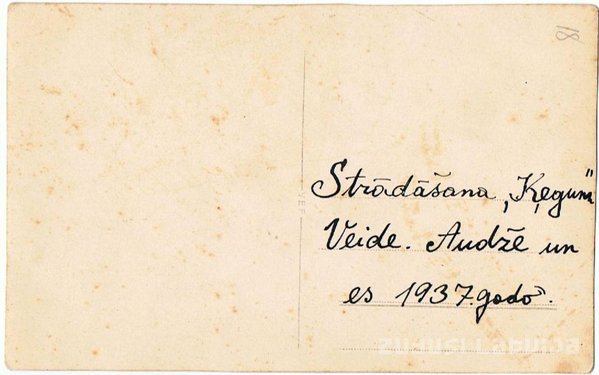 18
Strādāšana „Ķegum"
Veide. Audžē un
es 1937.gadā.